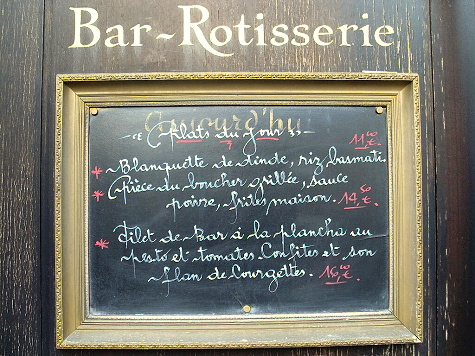 Bar-Rotisserie
Aujourd'hui
" Plats du jour "
11,00 €.
* Blanquette de dinde, riz basmati.
* Pièce du boucher grillée, sauce
poivre, frites maison. 14,50 €.
* Filet de Bar à la plancha au
pesto et tomates Confites et son
flan de Courgettes. 16,00 €.